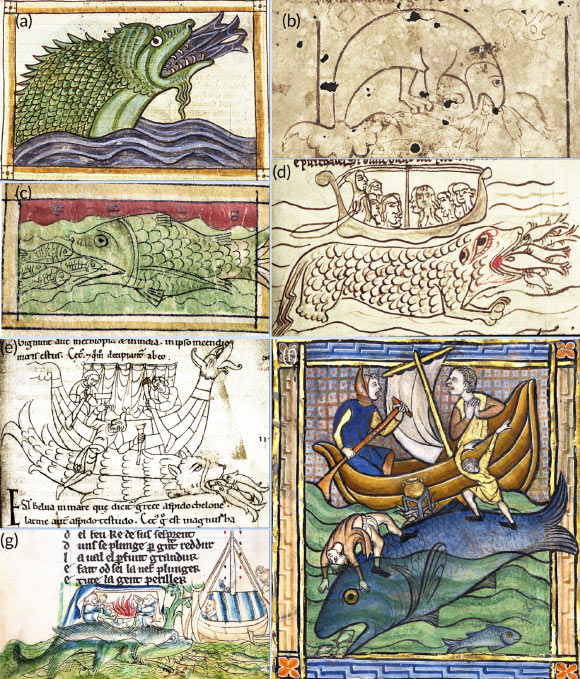 (a)
(b)
(c)
(d)
(e)
Gignunt aut in ethiopia & in india. in ipso incendio
estus. decipiant ab eo.
Est belua in mare que dicit grece aspido chelone
latine aut aspido testudo. q est magnus ha
(f)
(g)
el feu ke de sus sesprent
uns se plunge p gnt reddur
a ual el pfunt grandur
e fait od sei la nef plunger
e tute la gent periller